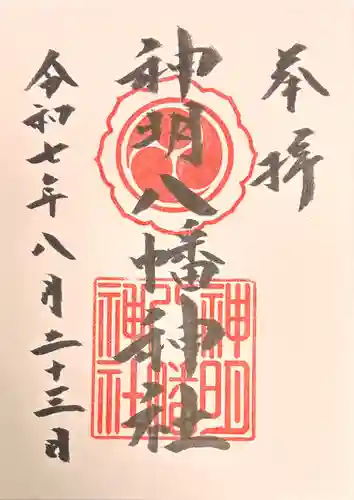 奉拝
神明八幡神社
神明八幡神社
令和七年八月二十三日